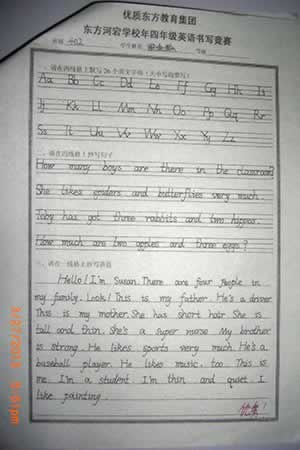 优质东方教育集团
东方河宕学校年四年级英语书写竞赛
班别 402 学生姓名 号数
一、请在四线格上默写26个英文字母(大小写均要写)
Aa Bb Cc Dd Ee Ff Gg Hh Ii
Jj Kk Ll Mm Nn Oo Pp Qq Rr
Ss Tt Uu Vv Ww Xx Yy Zz
二、请在四线格上抄写句子
How many boys are there in the classroom?
She likes spiders and butterflies very much.
Toby has got three rabbits and two hippos.
How much are two apples and three eggs?
三、请在一线格上抄写短语
Hello! I'm Susan. There are four people in
my family. Look! This is my father. He's a driver.
This is my mother. She has short hair. She is
tall and thin. She's a super nurse. My brother
is strong. He likes sports very much. He's a
baseball player. He likes music, too. This is
me. I'm a student. I'm thin and quiet. I
like painting.
优秀!